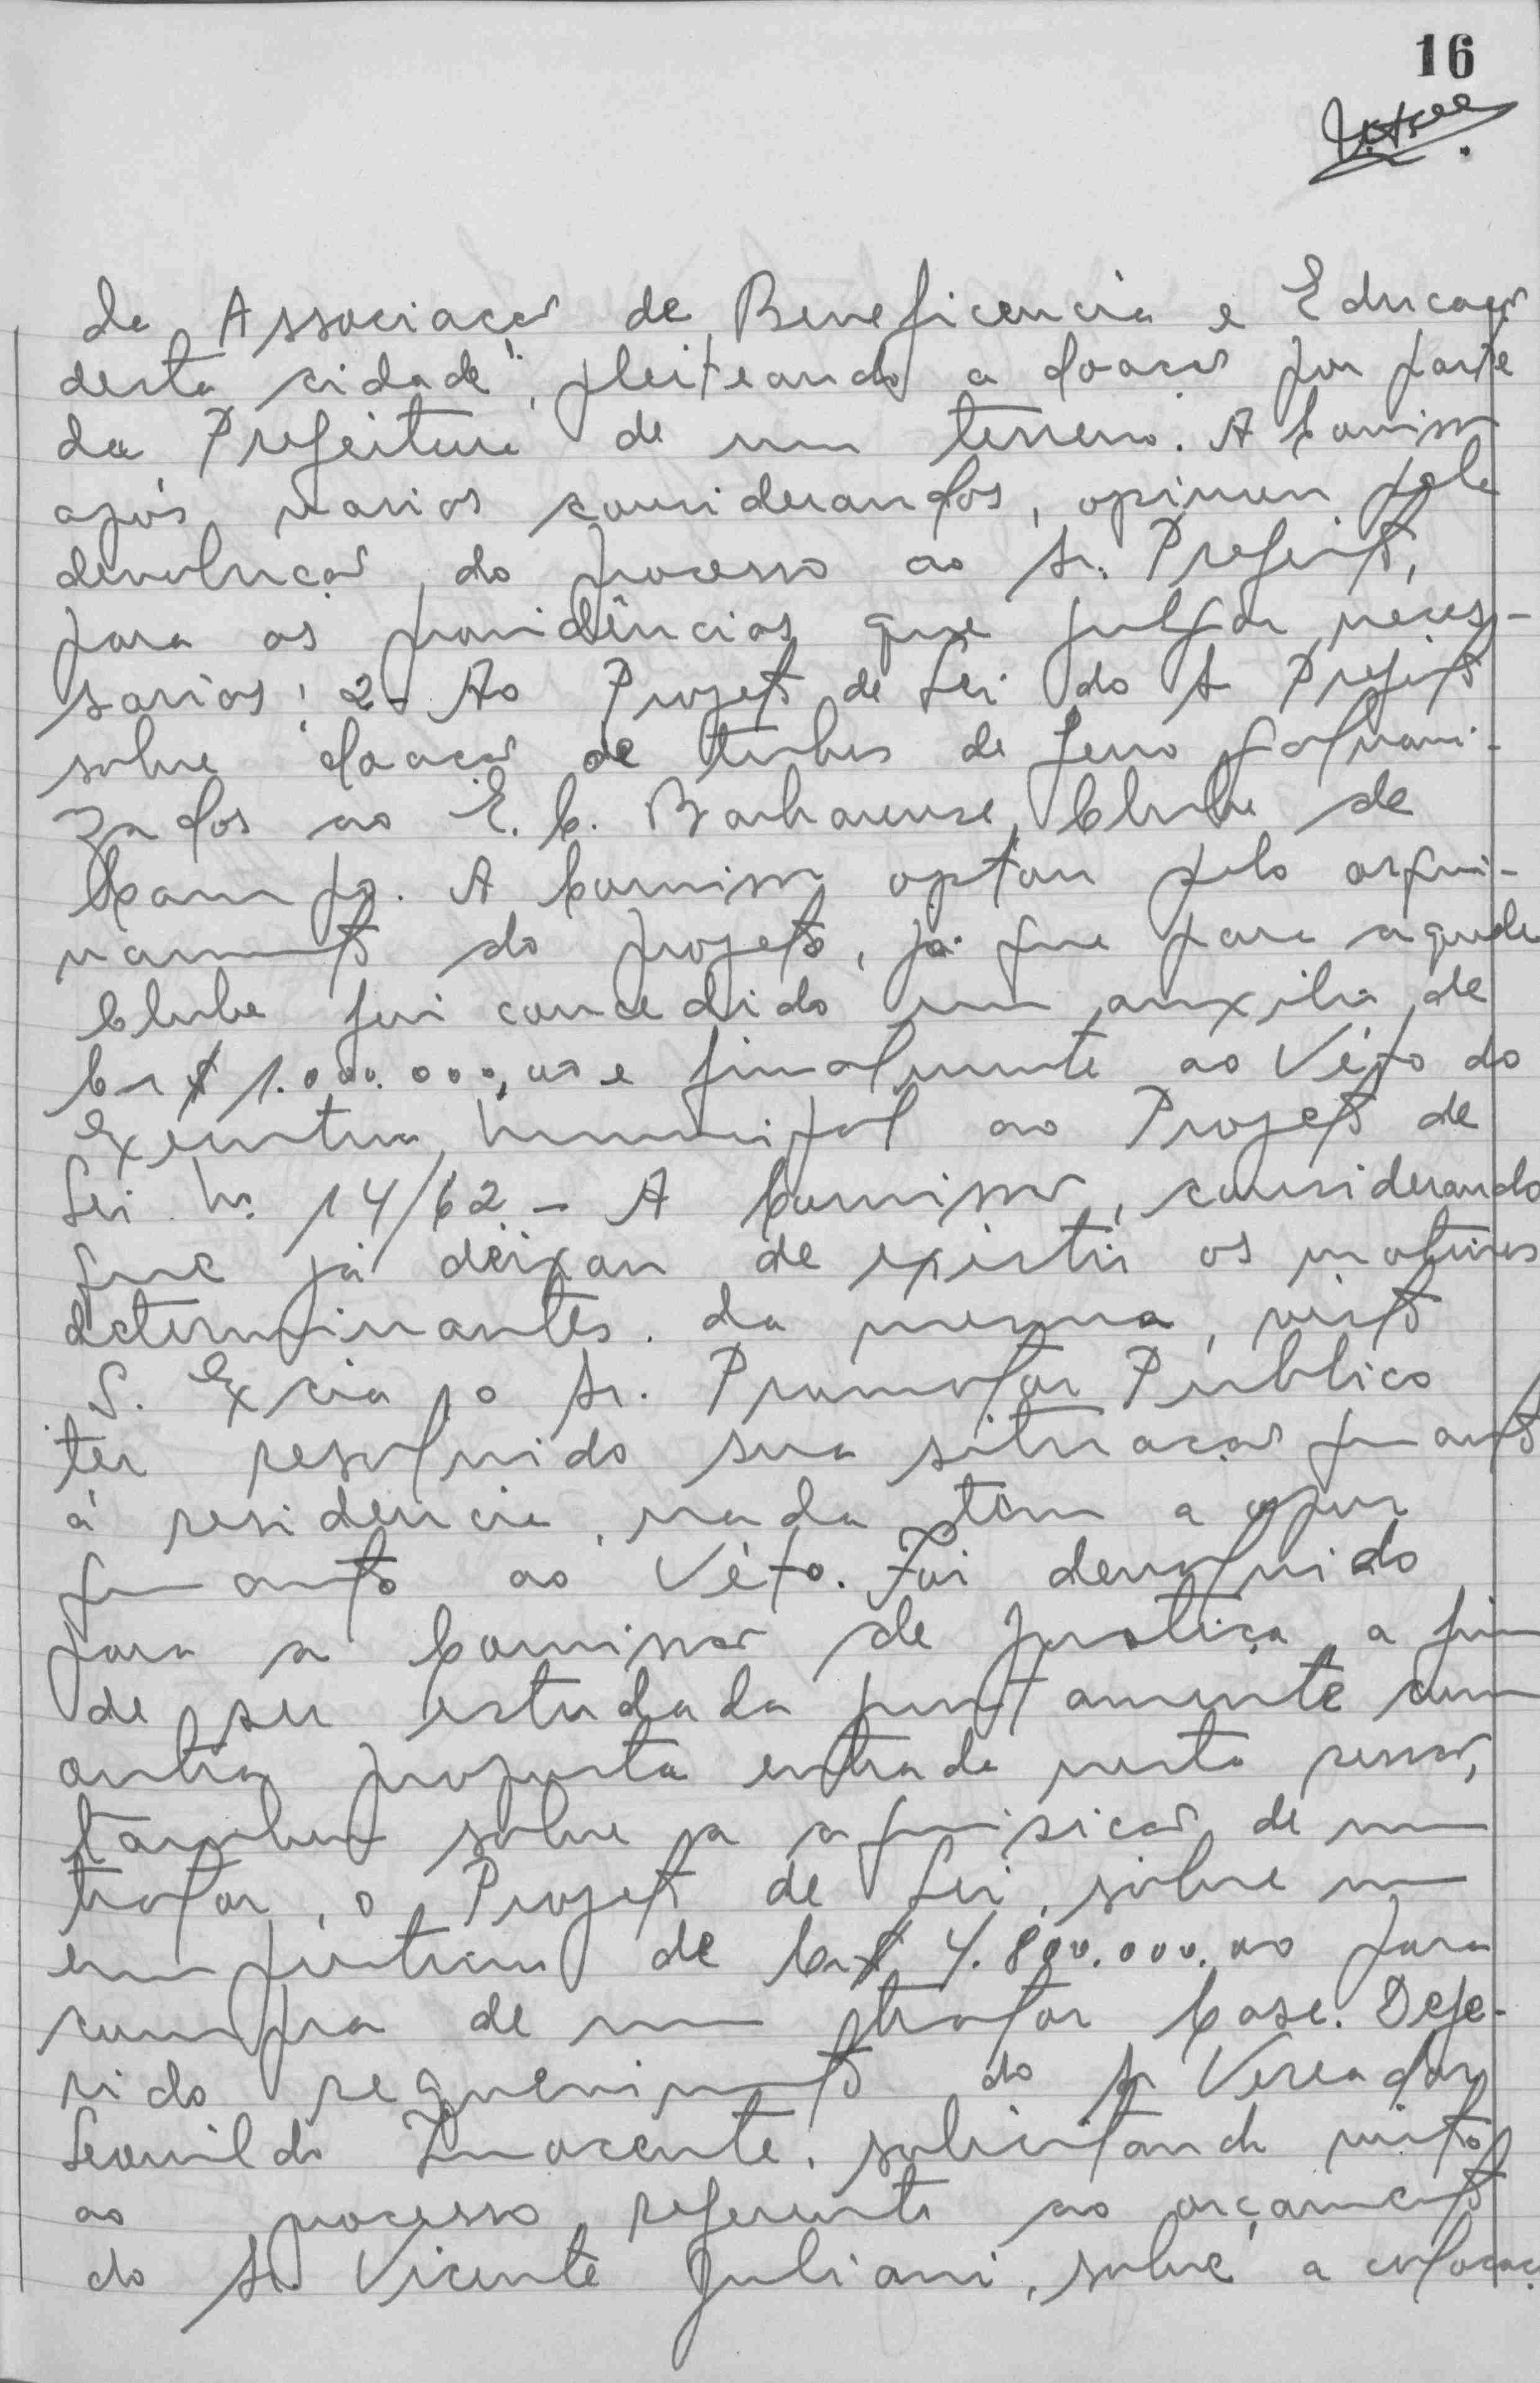 16
da Associação de Beneficencia e Educação
desta cidade", pleiteando a doação por parte
da Prefeitura de um terreno. A Comissão
após varios considerandos, opinou pela
devolução do processo ao Sr. Prefeito,
para as providências que julgar neces-
sarias; 2- Ao Projeto de Lei do Sr Prefeito
sobre doação de tubos de ferro galvani-
zados ao E. C. Barbarense, Clube de
Campo. A Comissão optou pelo arqui-
vamento do projeto, já que para aquele
Clube foi concedido um auxilio de
Cr$ 1.000.000,00 e finalmente ao Véto do
Executivo Municipal ao Projeto de
Lei Nº 14/62 - A Comissão, considerando
que já deixou de existir os motivos
determinantes da mesma, visto
S. Excia, o Sr. Promotor Público
ter resolvido sua situação quanto
á residencia, nada tem a opor
quanto ao Véto. Foi devolvido
para a Comissão de Justiça, a fim
de ser estudada juntamente com
outra proposta entrada nesta sessão,
tambem sobre a aquisição de um
trator, o Projeto de Lei, sobre um
emprestimo de Cr$ 4.800.000,00 para
compra de um trator Case. Defe-
rido requerimento do Sr Vereador
Leonildo Inocente, solicitando vista
ao processo referente ao orçamento
do Sr. Vicente Juliani, sobre a colocaç